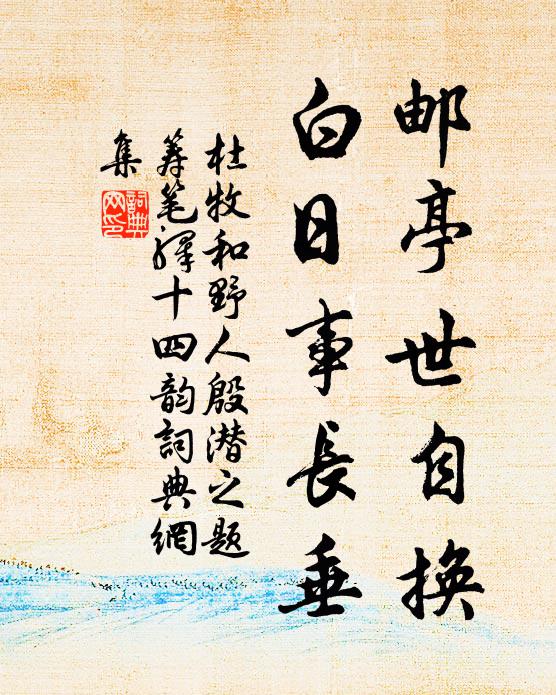 邮亭世自换
白日事长垂
杜牧和野人殷潜之题
筹笔驿十四韵詞典網
集
詞典
网印